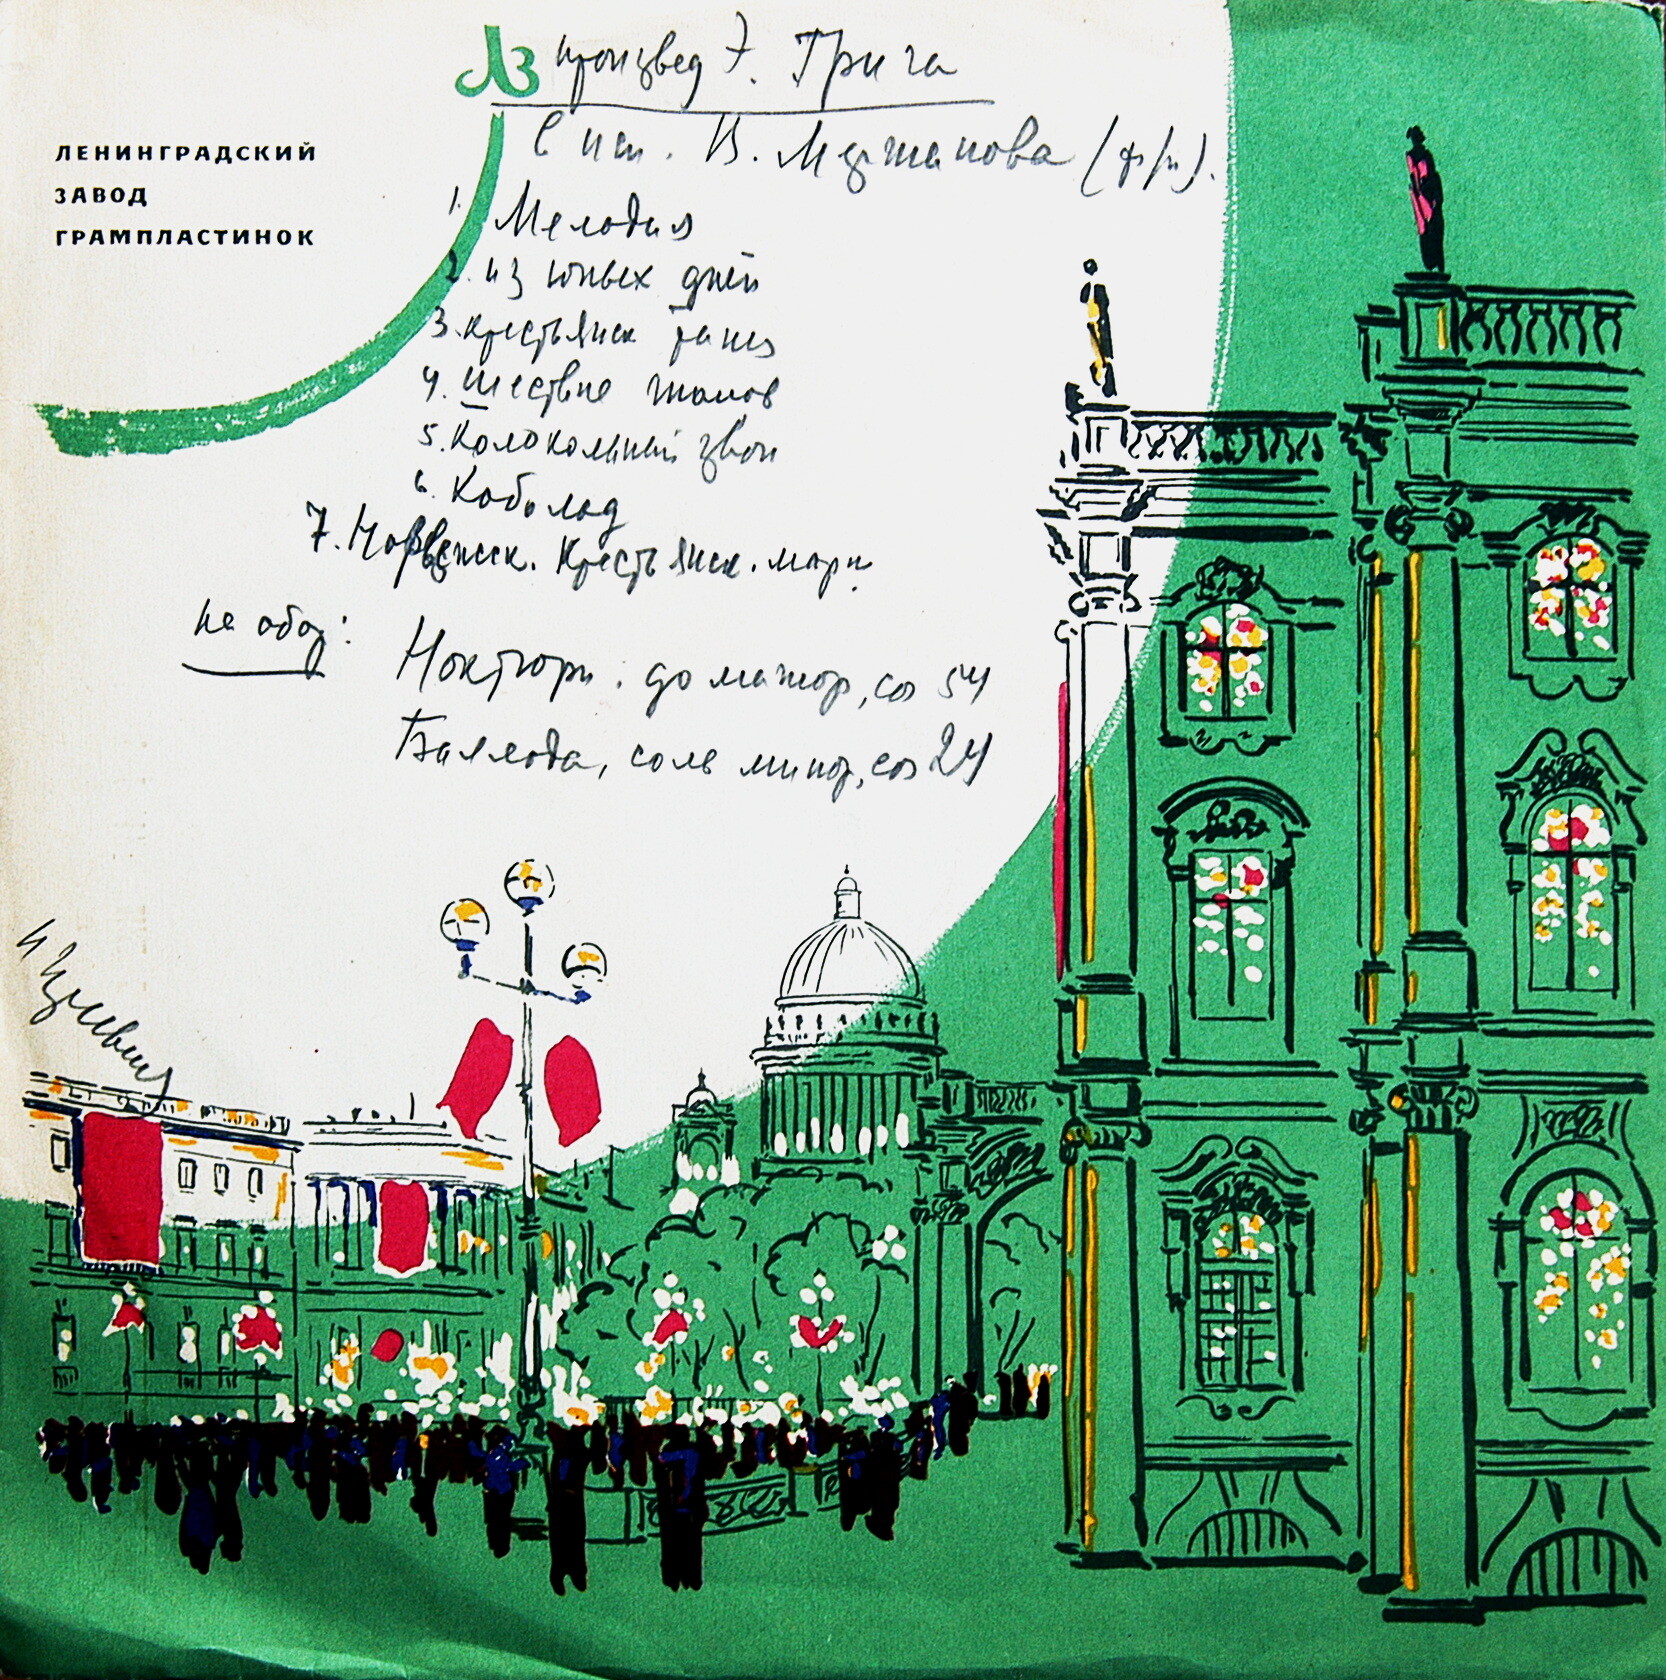 ЛЗ произвед Э. Грига
в исп. В. Мержанова (ф/п).
ЛЕНИНГРАДСКИЙ
ЗАВОД
ГРАМПЛАСТИНОК
1. Мелодия
2. из юных дней
3. крестьянск танец
4. шествие гномов
5. Колокольный звон
6. Кобольд
7. Норвежск. Крестьянск. марш.
на обор:
Ноктюрн. до мажор, соч 54
Баллада, соль минор, соч 24